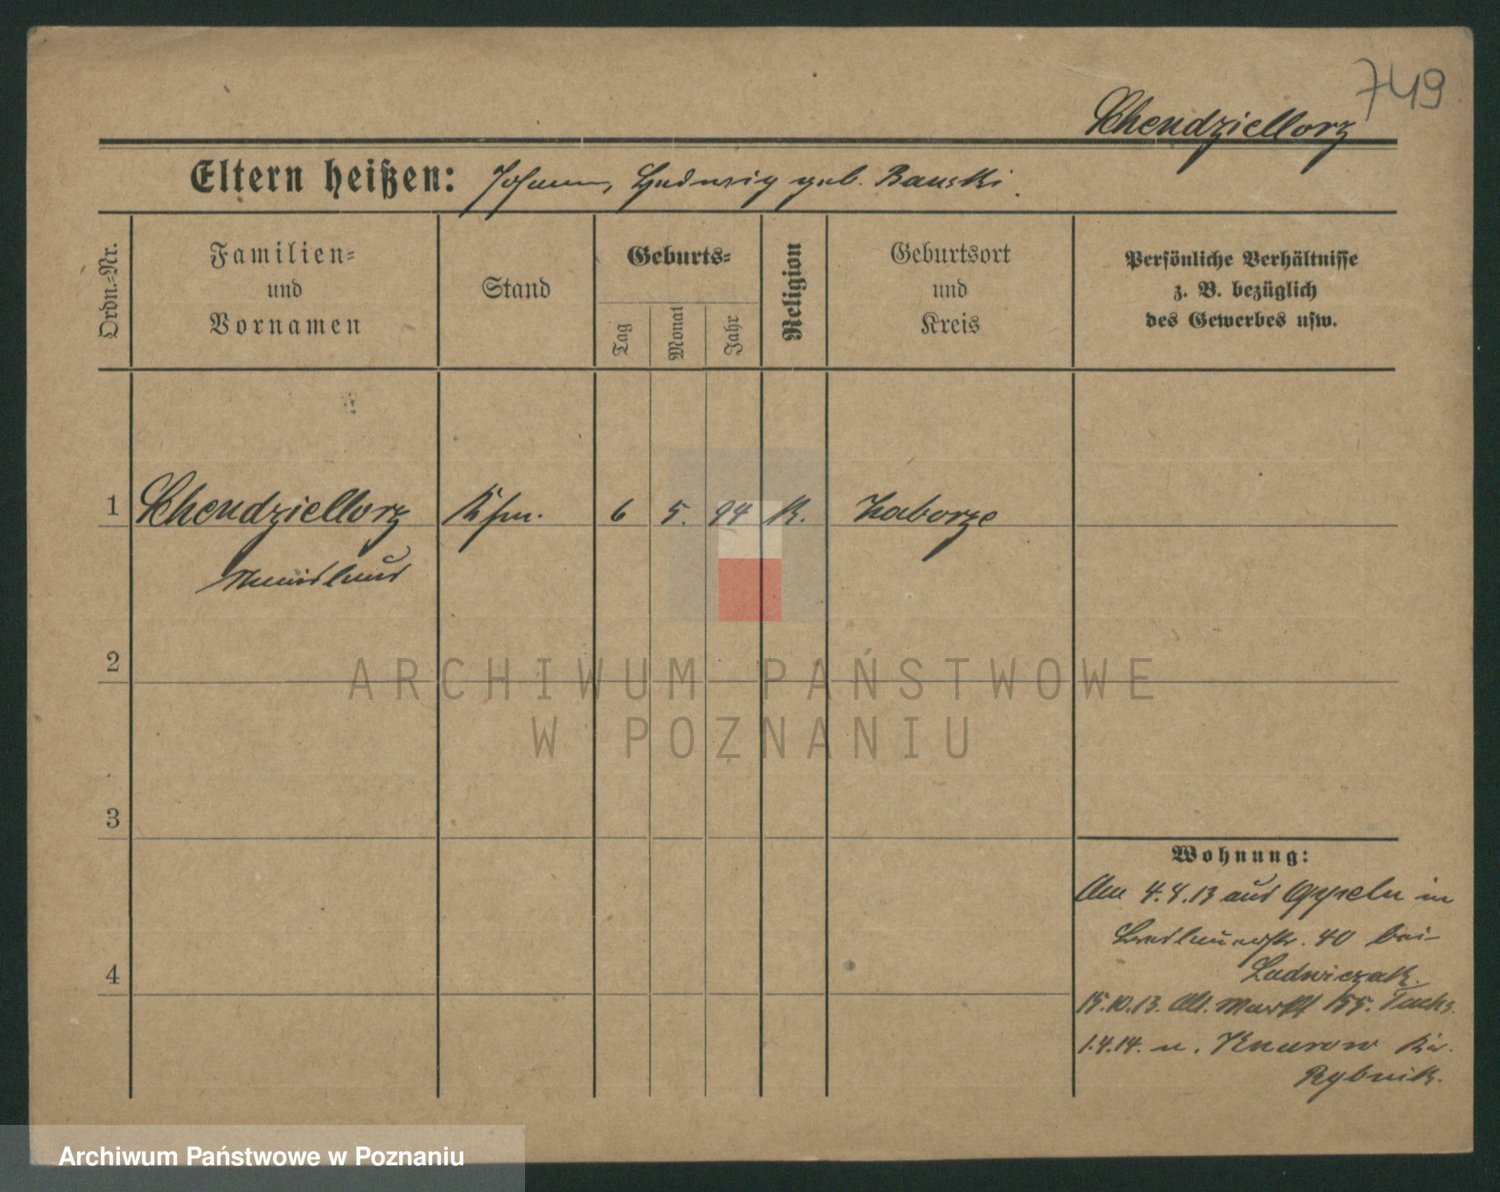 749
Chendziellorz
Eltern heißen: Johann, Hedwig geb. Banski.
Ordn.-Nr.
Familien-
und
Vornamen
Stand
Geburts-
Tag
Monat
Jahr
Religion
Geburtsort
und
Kreis
Persönliche Verhältnisse
z. B. bezüglich
des Gewerbes usw.
1
Chendziellorz
Kfm.
6
5.
94
K.
Zaborze
2
3
4
Wohnung:
Am 4.4.13 aus Oppeln in
40 bei
Ludwiczak.
15.10.13. Alt. Markt 55. Fuchs.
1.4.14. n. Knurow Kr.
Rybnik.
ARCHIWUM PAŃSTWOWE
W POZNANIU
Archiwum Państwowe w Poznaniu